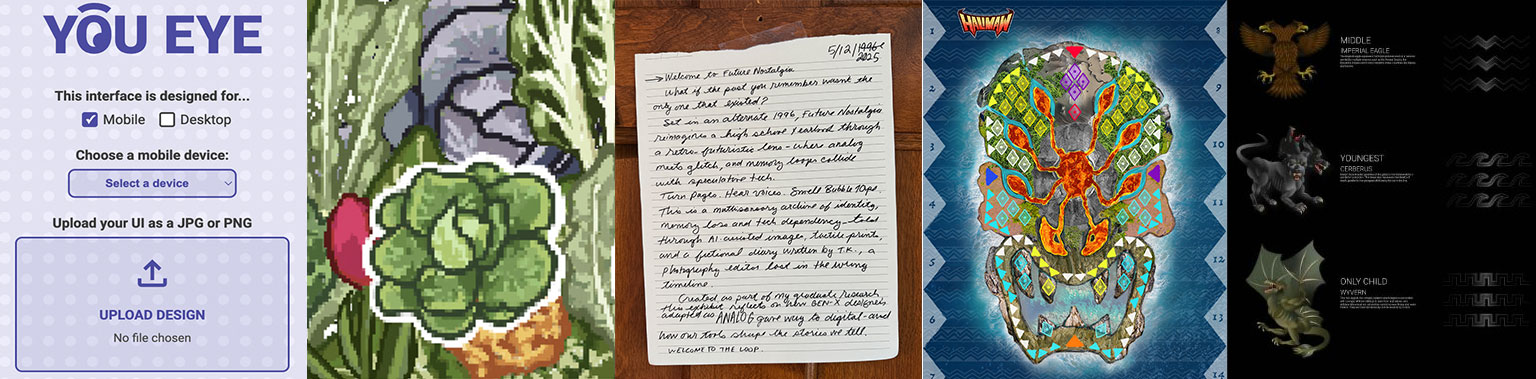 YOU EYE
This interface is designed for...
Mobile
Desktop
Choose a mobile device:
Select a device
Upload your UI as a JPG or PNG
UPLOAD DESIGN
No file chosen
5/12/1996
2025
→ Welcome to Future Nostalgia
What if the past you remember wasn't the
only one that existed?
Set in an alternate 1996, Future Nostalgia
reimagines a high school yearbook through
a retro-futuristic lens - where analog
meets glitch, and memory loops collide
with speculative tech.
Turn pages. Hear voices. Smell Bubble Tape.
This is a multisensory archive of identity,
memory loss and tech dependency - told
through AI-assisted images, tactile prints,
and a fictional diary written by T.K., a
photography editor lost in the wrong
timeline.
Created as part of my graduate research,
this exhibit reflects on how GEN-X designers
adapted as ANALOG gave way to digital - and
how our tools shape the stories we tell.
WELCOME TO THE LOOP.
HALIMAW
1
2
3
4
5
6
7
8
9
10
11
12
13
14
MIDDLE
IMPERIAL EAGLE
YOUNGEST
CERBERUS
ONLY CHILD
WYVERN